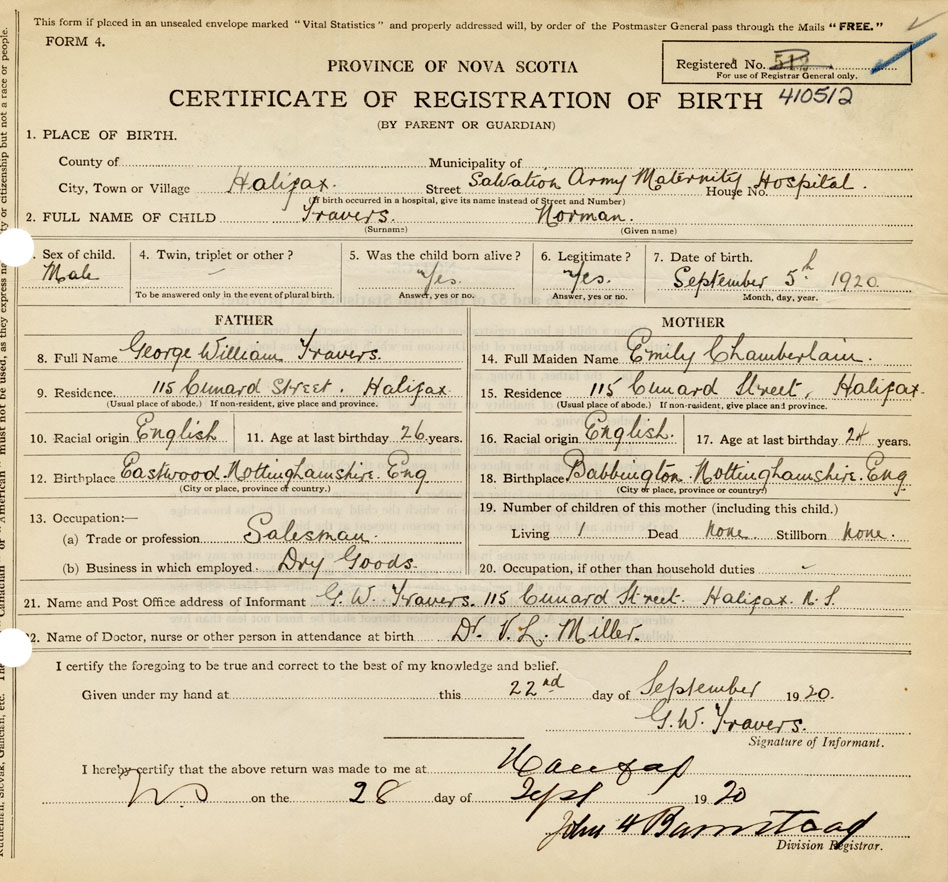 This form if placed in an unsealed envelope marked "Vital Statistics" and properly addressed will, by order of the Postmaster General pass through the Mails "FREE."
FORM 4.
Registered No. 512
For use of Registrar General only.
PROVINCE OF NOVA SCOTIA
CERTIFICATE OF REGISTRATION OF BIRTH 410512
(BY PARENT OR GUARDIAN)
1. PLACE OF BIRTH.
County of Municipality of
City, Town or Village Halifax. Street Salvation Army Maternity House No. Hospital.
(If birth occurred in a hospital, give its name instead of Street and Number)
2. FULL NAME OF CHILD Travers. Norman.
(Surname) (Given name)
Sex of child. 4. Twin, triplet or other? 5. Was the child born alive? 6. Legitimate? 7. Date of birth.
Male - Yes. Yes. September 5th 1920.
To be answered only in the event of plural birth. Answer, yes or no. Answer, yes or no. Month, day, year.
FATHER MOTHER
8. Full Name George William Travers. 14. Full Maiden Name Emily Chamberlain.
9. Residence 115 Cunard Street. Halifax. 15. Residence 115 Cunard Street, Halifax.
(Usual place of abode.) If non-resident, give place and province. (Usual place of abode.) If non-resident, give place and province.
10. Racial origin English 11. Age at last birthday 26 years. 16. Racial origin English. 17. Age at last birthday 24 years.
12. Birthplace Eastwood. Nottinghamshire. Eng 18. Birthplace Babbington. Nottinghamshire. Eng
(City or place, province or country.) (City or place, province or country)
13. Occupation:— 19. Number of children of this mother (including this child.)
(a) Trade or profession Salesman. Living 1 Dead None. Stillborn None.
(b) Business in which employed. Dry Goods. 20. Occupation, if other than household duties -
21. Name and Post Office address of Informant G. W. Travers. 115 Cunard Street. Halifax. N. S.
22. Name of Doctor, nurse or other person in attendance at birth Dr. V. L. Miller.
I certify the foregoing to be true and correct to the best of my knowledge and belief.
Given under my hand at this 22nd day of September 1920.
G. W. Travers.
Signature of Informant.
I hereby certify that the above return was made to me at Halifax
N S on the 28 day of Sept 1920
John H Barnstead
Division Registrar.